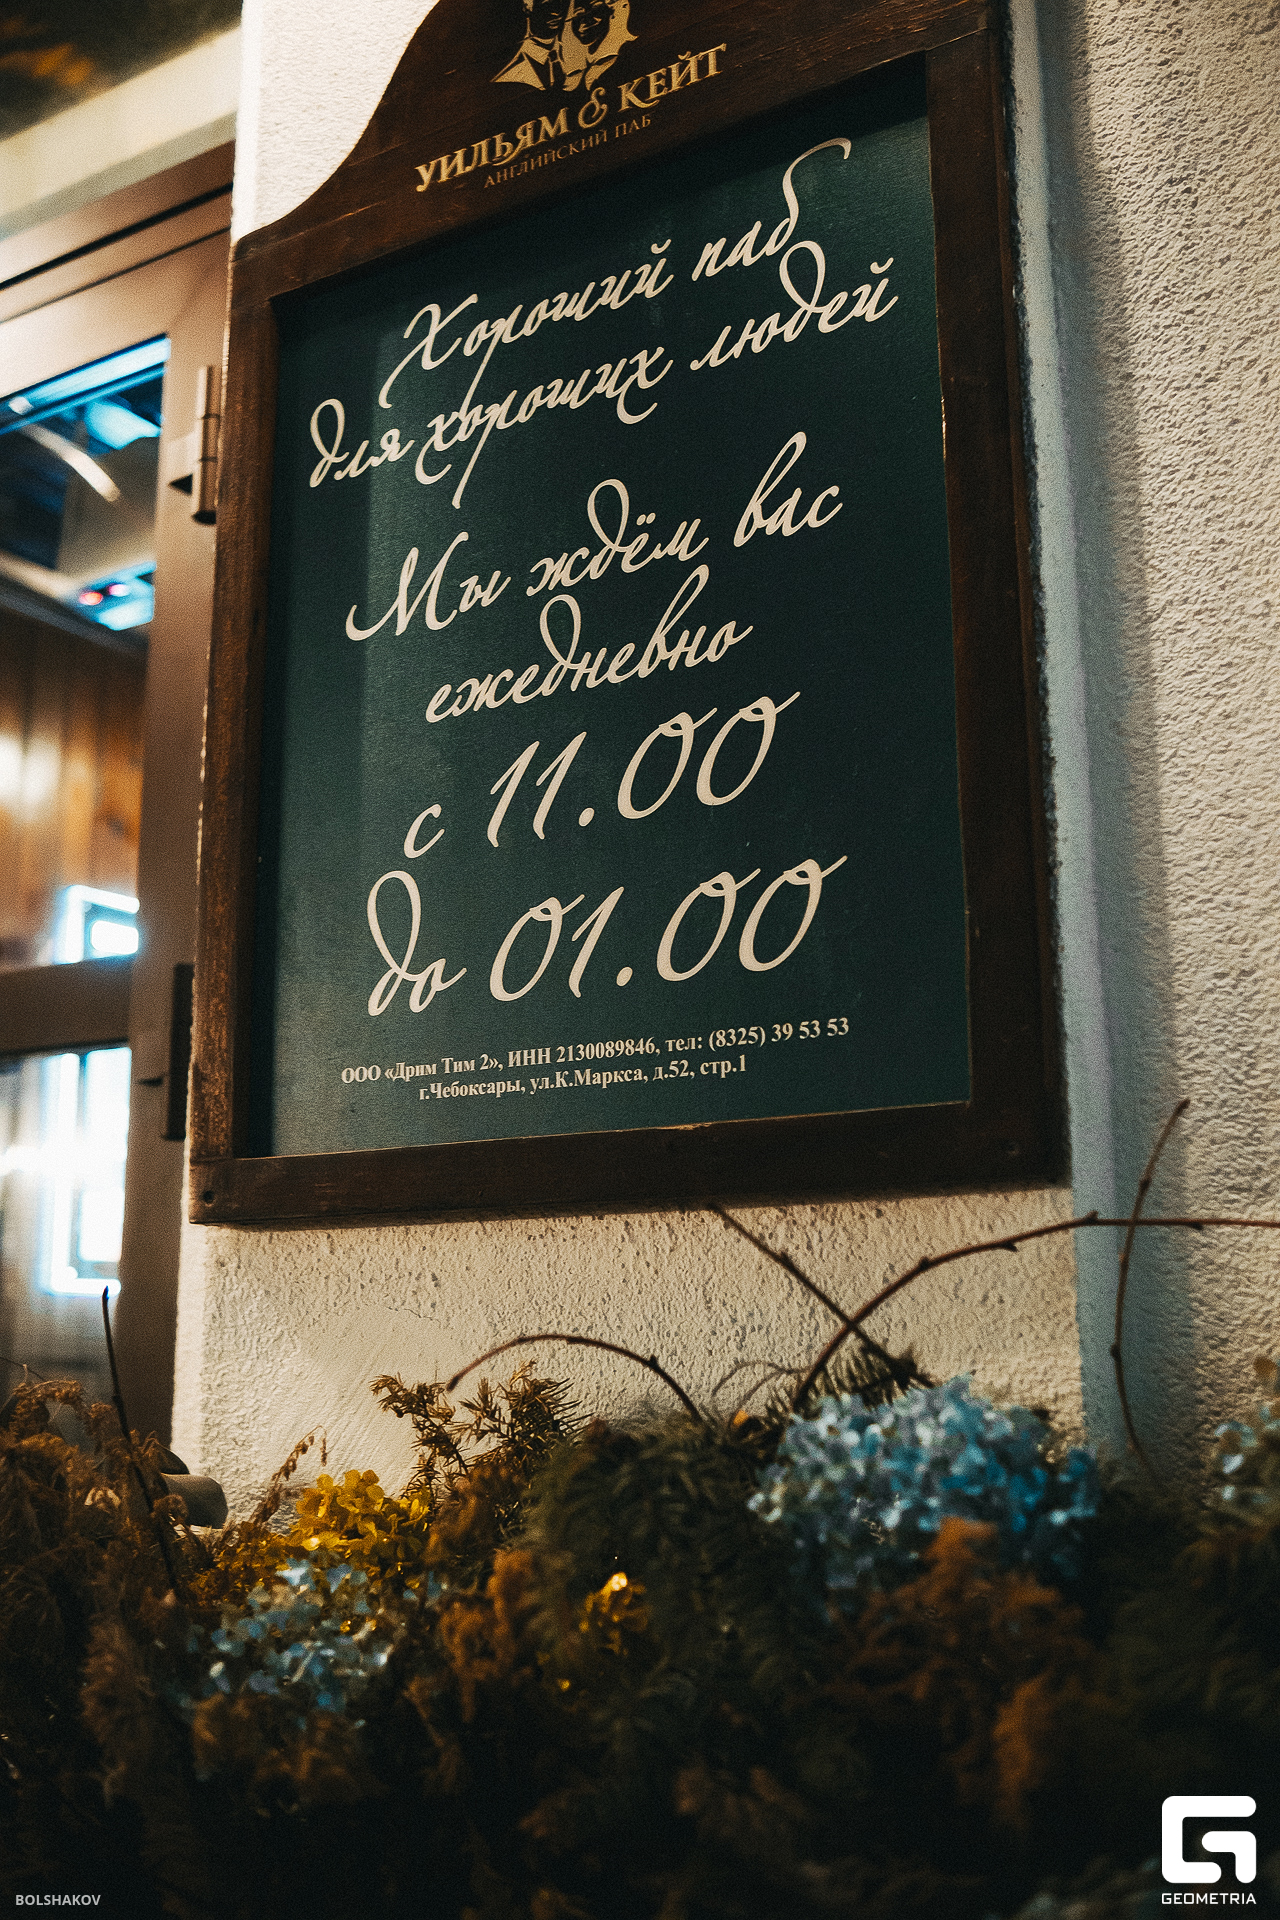 УИЛЬЯМ & КЕЙТ
АНГЛИЙСКИЙ ПАБ
Хороший паб
для хороших людей
Мы ждём вас
ежедневно
с 11.00
до 01.00
ООО «Дрим Тим 2», ИНН 2130089846, тел: (8325) 39 53 53
г.Чебоксары, ул.К.Маркса, д.52, стр.1
BOLSHAKOV
GEOMETRIA